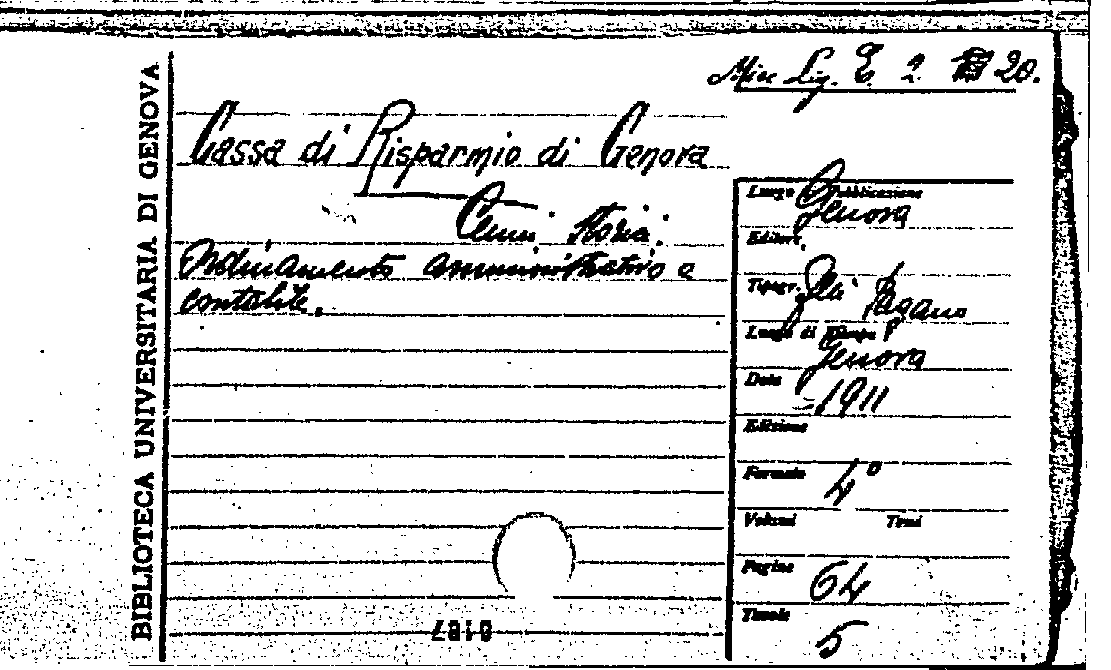 Misc Lig. E. 2. 20.
BIBLIOTECA UNIVERSITARIA DI GENOVA
Cassa di Risparmio di Genova
Cenni Storici.
Ordinamento amministrativo e
contabile.
Luogo Pubblicazione
Genova
Editore
Tipogr. F.lli Pagano
Luogo di Stampa
Genova
Data
1911
Edizione
Formato 4°
Volumi Tomi
Pagine 64
Tavole 5